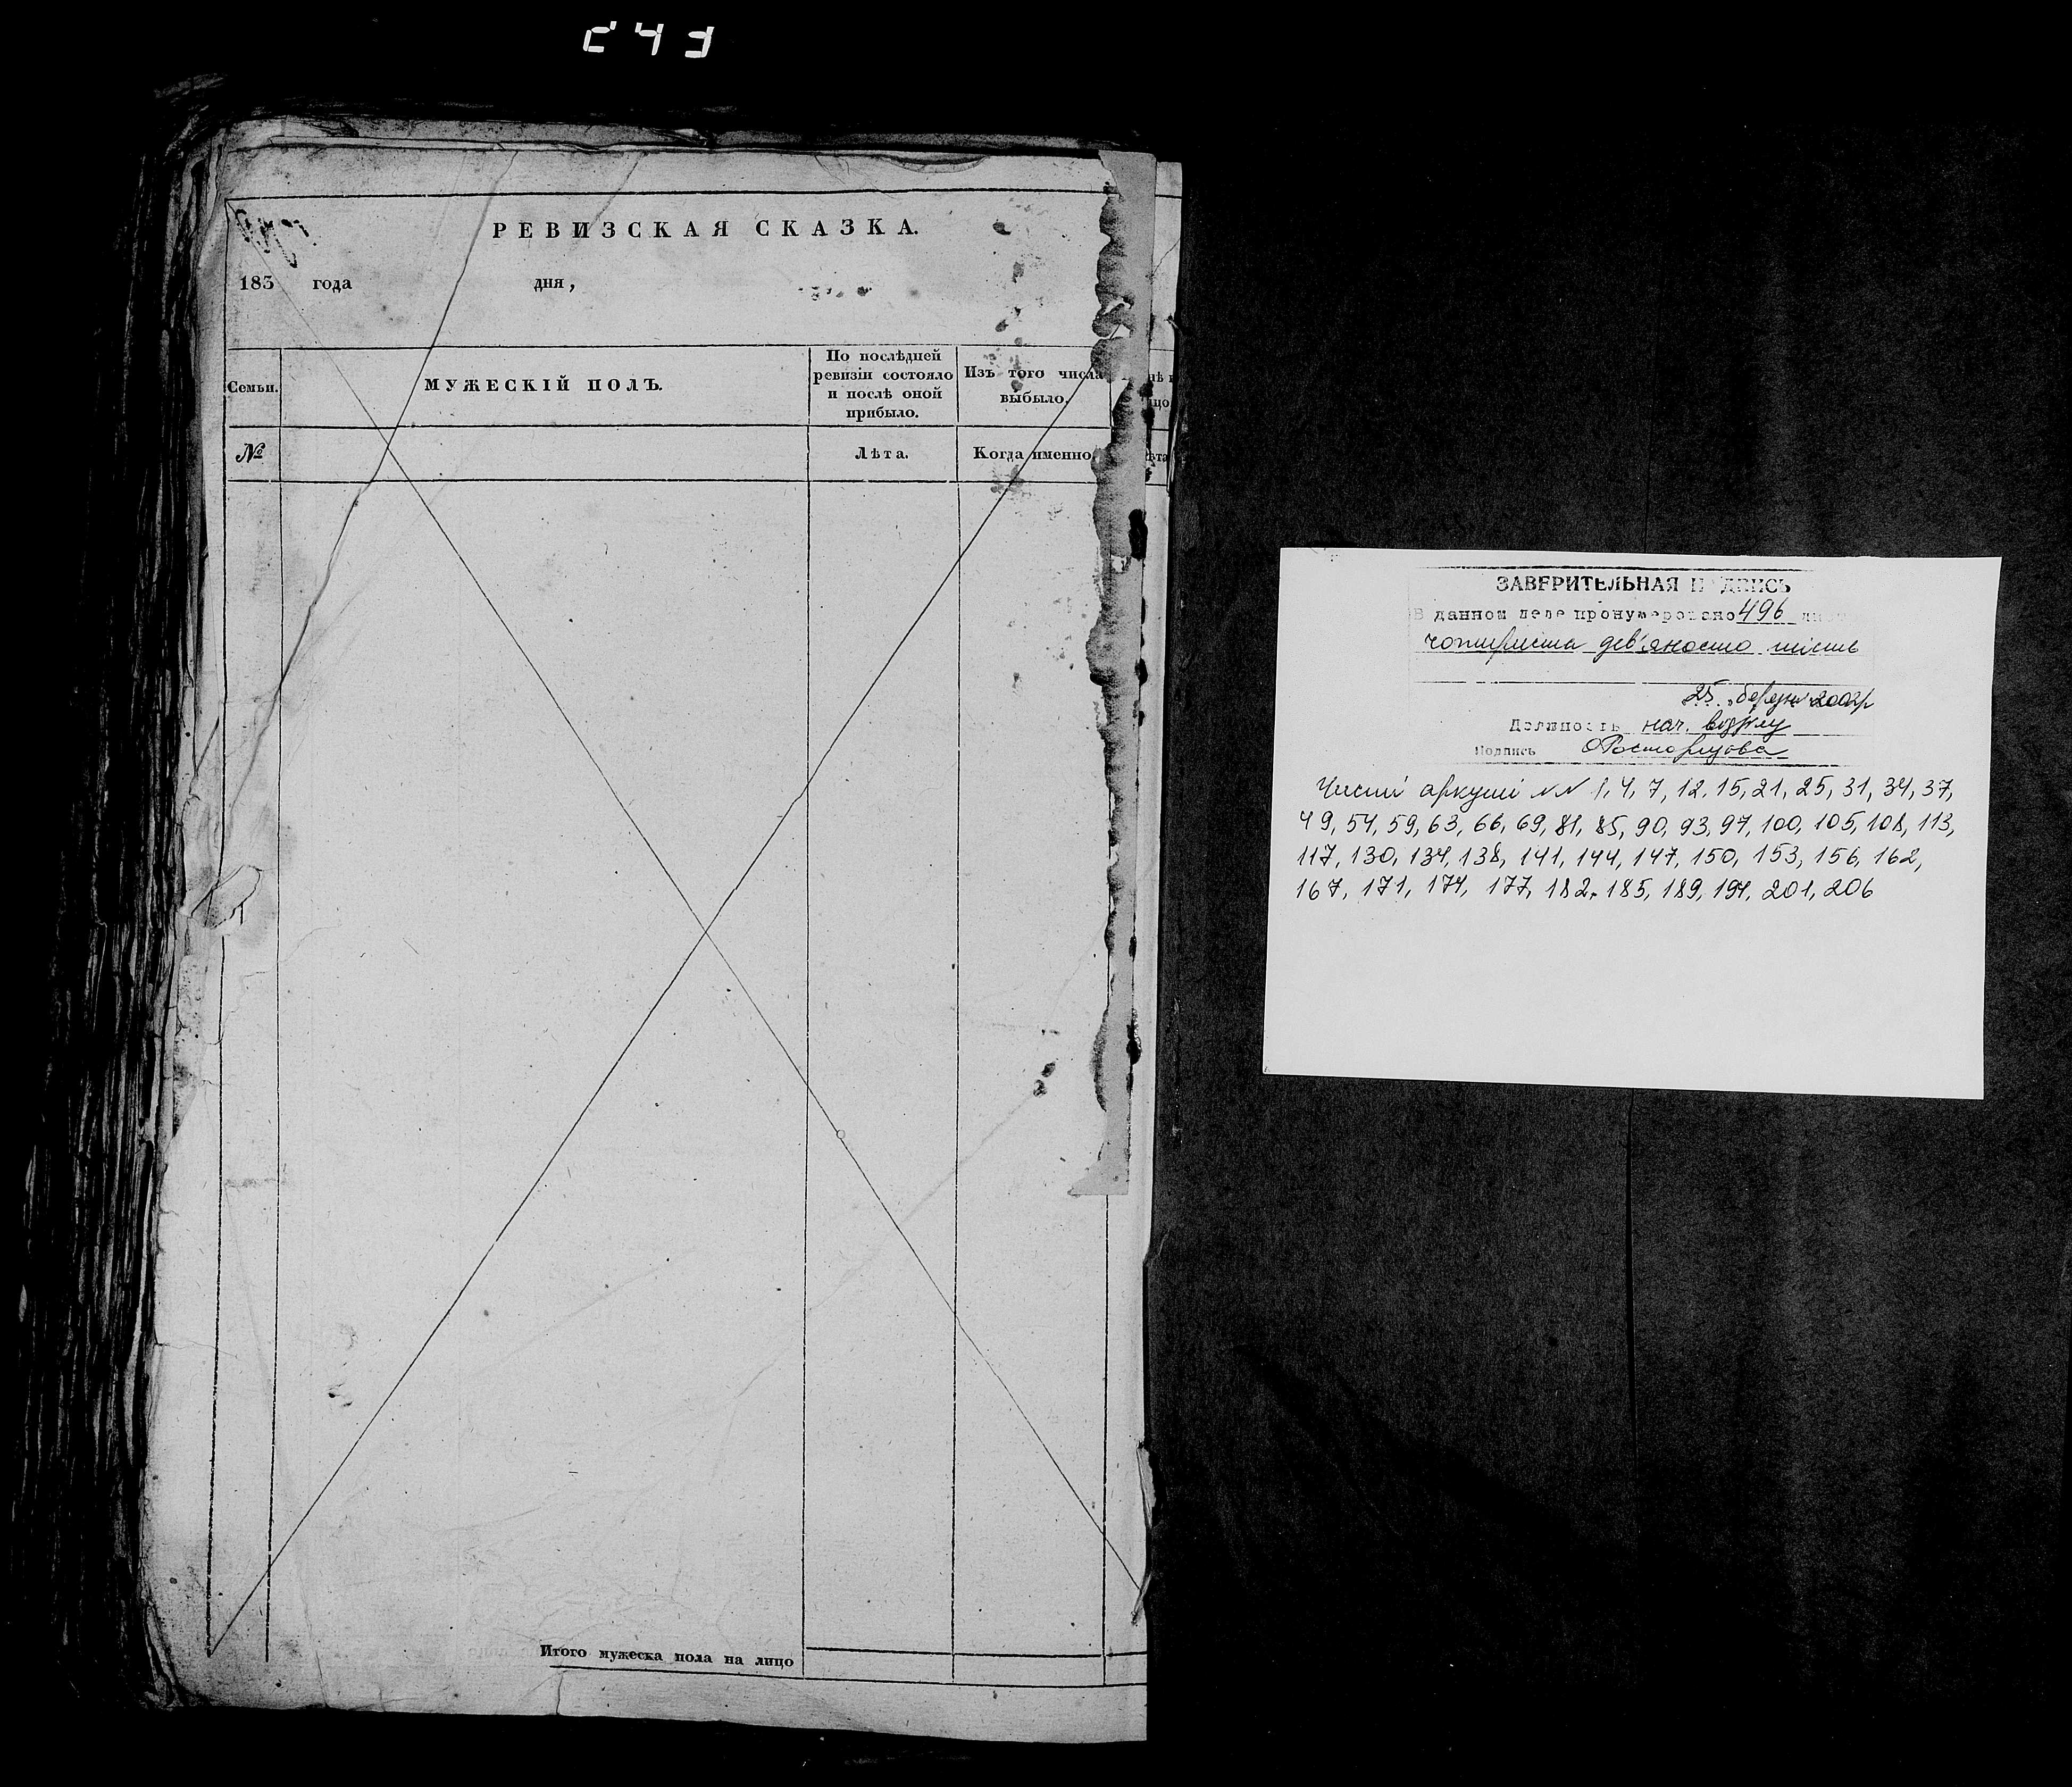 РЕВИЗСКАЯ СКАЗКА.
183 года дня,
Семьи.
МУЖЕСКІЙ ПОЛЪ.
По послѣдней
ревизіи состояло
и послѣ оной
прибыло.
Изъ того числа
выбыло.
№
Лѣта.
Когда именно.
Итого мужеска пола на лицо
ЗАВЕРИТЕЛЬНАЯ
В данном деле пронумеровано 496
чотириста дев'яносто шість
25 березня
Должность нач. відділу
Подпись
Чисті аркуші NN 1, 4, 7, 12, 15, 21, 25, 31, 34, 37,
49, 54, 59, 63, 66, 69, 81, 85, 90, 93, 97, 100, 105, 108, 113,
117, 130, 134, 138, 141, 144, 147, 150, 153, 156, 162,
167, 171, 174, 177, 182, 185, 189, 194, 201, 206